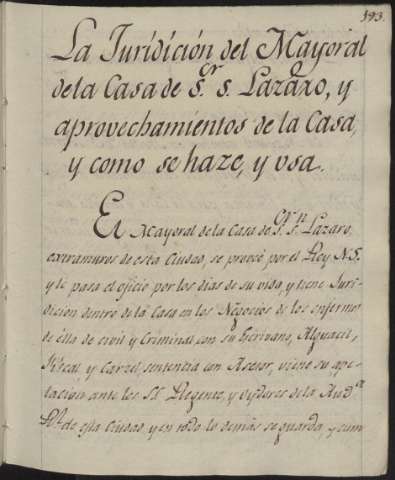 193.
La Juridición del Mayoral
dela Casa de Sr. S. Lazaro, y
aprovechamientos de la Casa,
y como se haze, y vsa.
El Mayoral dela Casa de Sr. Sn. Lazaro,
extramuros de esta Ciudad, se proveé por el Rey N.S.
y le pasa el oficio por los dias de su vida, y tiene Juri-
dicion dentro dela Casa en los Negocios de los enfermos
de ella de civil y Criminal con su Escrivano, Alguacil,
Fiscal y Carzel, sentencia con Asesor, viene su ape-
lacion ante los SS. Regente, y Oydores dela Auda.
Rl. de esta Ciudad, y en todo lo demás se guarda, y cum